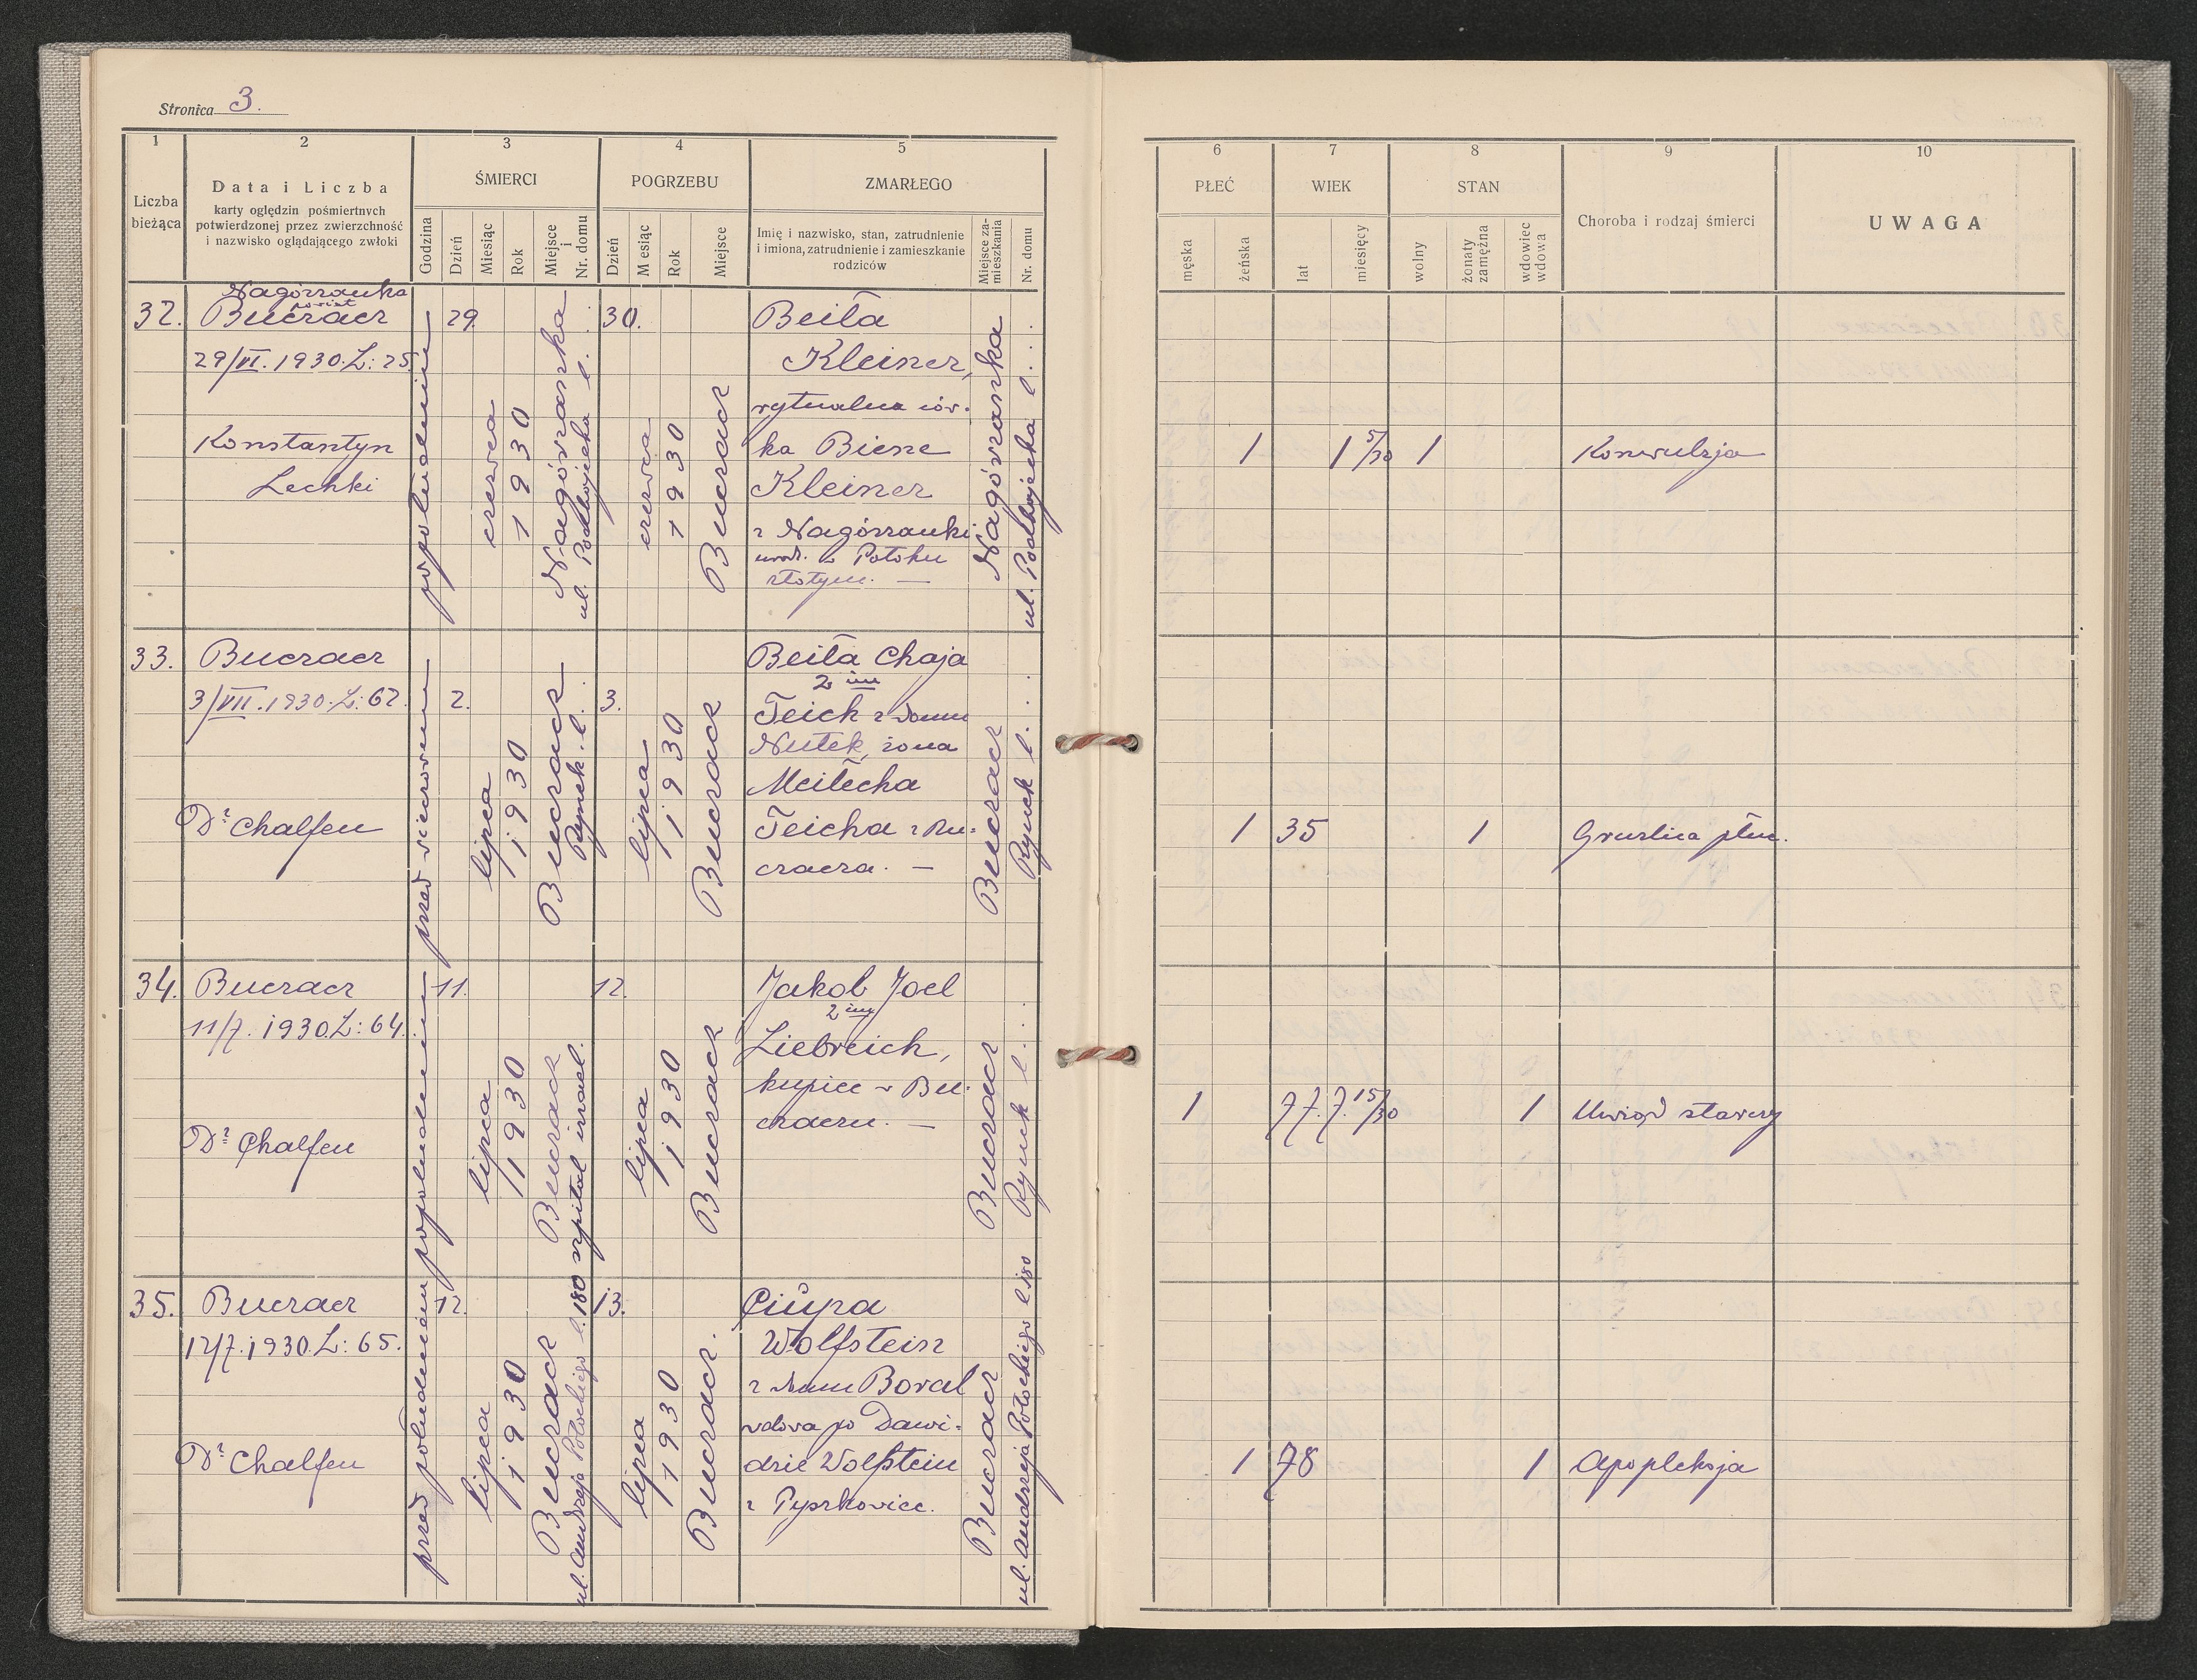 Stronica 3.
1 2 3 4 5
Liczba bieżąca
Data i Liczba
karty oględzin pośmiertnych
potwierdzonej przez zwierzchność
i nazwisko oglądającego zwłoki
ŚMIERCI
Godzina
Dzień
Miesiąc
Rok
Miejsce i Nr. domu
POGRZEBU
Dzień
M esiąc
Rok
Miejsce
ZMARŁEGO
Imię i nazwisko, stan, zatrudnienie
i imiona, zatrudnienie i zamieszkanie
rodziców
Miejsce za-
mieszkania
Nr. domu
6 7 8 9 10
PŁEĆ
męska
żeńska
WIEK
lat
miesięcy
STAN
wolny
żonaty
zamężna
wdowiec
wdowa
Choroba i rodzaj śmierci
UWAGA
32.
Nagórzanka
powiat
Buczacz
29/VI. 1930. L: 25
Konstantyn
Lechki
popołudniu
29.
czerwca
1930
Nagórzanka
ul. Podhajecka l. . .
30.
czerwca
1930
Buczacz
Beila
Kleiner,
rytualna cór-
ka Biene
Kleiner
z Nagórzanki
urodz. w Potoku
złotym. —
Nagórzanka
ul. Podhajecka l. . .
1
1 5/30
1
Konwulzja
33.
Buczacz
3/VII. 1930. L: 62.
Dr Chalfen
przed wieczorem
2.
lipca
1930
Buczacz
Rynek l. .
3.
lipca
1930
Buczacz
Beila Chaja
2 im
Teich z domu
Nutek, żona
Meilecha
Teicha z Bu-
czacza. —
Buczacz
Rynek l. . .
1
35
1
Gruźlica płuc.
34.
Buczacz
11/7. 1930. L: 64.
Dr Chalfen
popołudniu
11.
lipca
1930
Buczacz
szpital izrael.
12.
lipca
1930
Buczacz
Jakob Joel
2 im
Liebreich,
kupiec w Bu-
czaczu. —
Buczacz
Rynek l. . .
1
77. 7. 15/30
1
Uwiąd starczy
35.
Buczacz
12/7. 1930. L: 65.
Dr Chalfen
przed południem
12.
lipca
1930
Buczacz
ul. Andrzeja Potockiego l. 180
13.
lipca
1930
Buczacz.
Ciupa
Wolfstein
z domu Boral
wdowa po Dawi-
dzie Wolfstein
z Pyszkowiec.
Buczacz
ul. Andrzeja Potockiego l. 180
1
78
1
Apopleksja